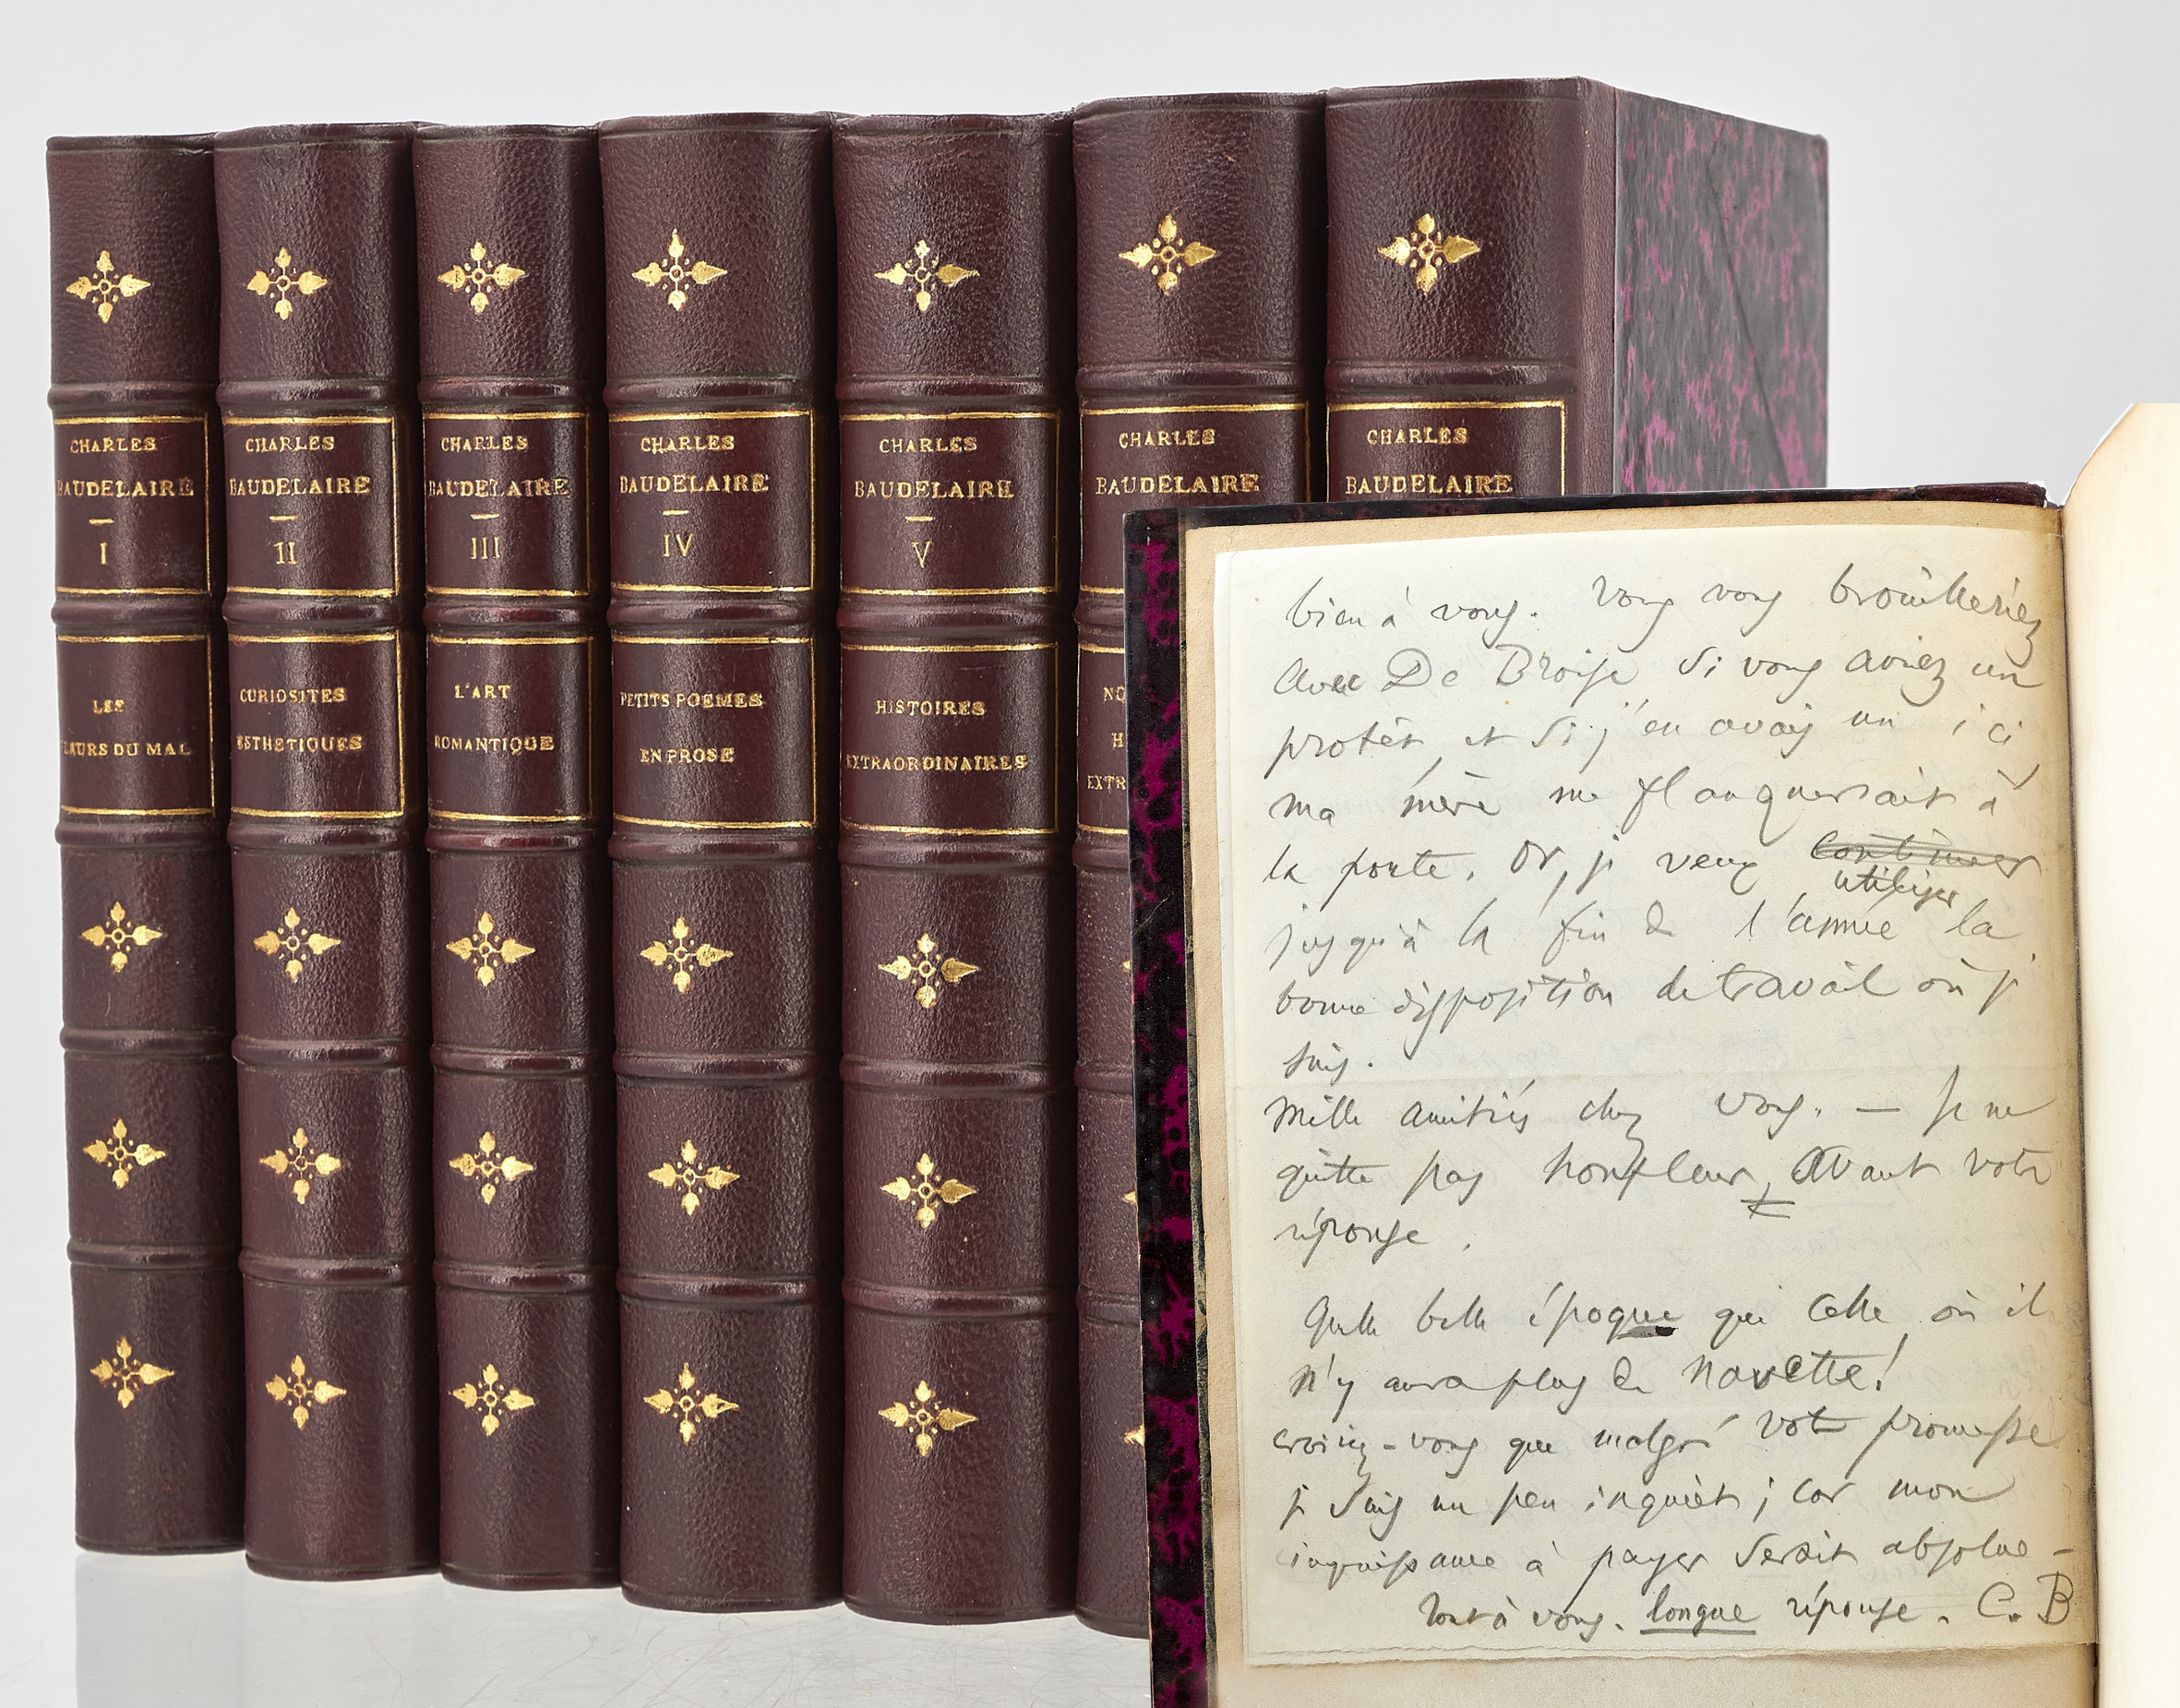 CHARLES
BAUDELAIRE
I
LES
FLEURS DU MAL
CHARLES
BAUDELAIRE
II
CURIOSITES
ESTHETIQUES
CHARLES
BAUDELAIRE
III
L'ART
ROMANTIQUE
CHARLES
BAUDELAIRE
IV
PETITS POEMES
EN PROSE
CHARLES
BAUDELAIRE
V
HISTOIRES
EXTRAORDINAIRES
CHARLES
BAUDELAIRE
NO
H
EXTR
CHARLES
BAUDELAIRE
bien à vous. Vous vous brouilleriez
avec De Broise, si vous aviez un
protêt, et si j'en avais un ici,
ma mère me flanquerait à
la porte. Or, je veux continuer
utiliser
jusqu'à la fin de l'année la
bonne disposition de travail où je
suis.
Mille amitiés chez vous. — Je ne
quitte pas honfleur, avant votre
réponse.
Quelle belle époque que celle où il
n'y aura plus de navette!
croiriez-vous que malgré votre promesse
je suis un peu inquiet; car mon
impuissance à payer serait absolue -
Tout à vous. longue réponse. C. B